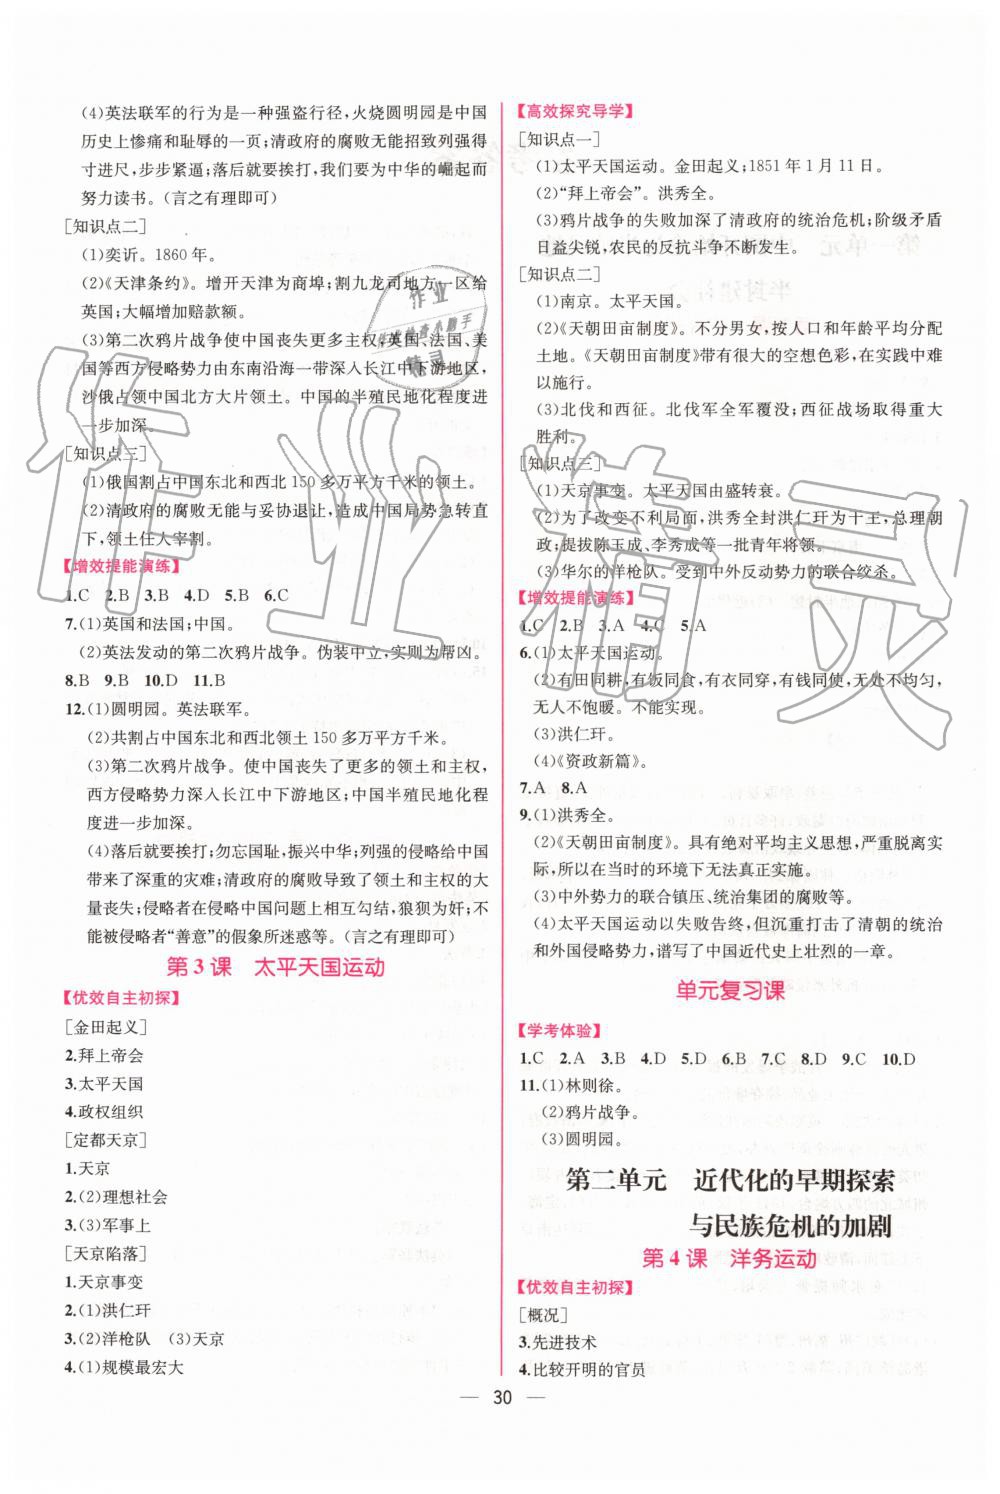 (4)英法联军的行为是一种强盗行径,火烧圆明园是中国
历史上惨痛和耻辱的一页;清政府的腐败无能招致列强得
寸进尺,步步紧逼;落后就要挨打,我们要为中华的崛起而
努力读书。(言之有理即可)
[知识点二]
(1)奕䜣。1860年。
(2)《天津条约》。增开天津为商埠;割九龙司地方一区给
英国;大幅增加赔款额。
(3)第二次鸦片战争使中国丧失更多主权,英国、法国、美
国等西方侵略势力由东南沿海一带深入长江中下游地区,
沙俄占领中国北方大片领土。中国的半殖民地化程度进
一步加深。
[知识点三]
(1)俄国割占中国东北和西北150多万平方千米的领土。
(2)清政府的腐败无能与妥协退让,造成中国局势急转直
下,领土任人宰割。
【增效提能演练】
1.C 2.B 3.B 4.D 5.B 6.C
7.(1)英国和法国;中国。
(2)英法发动的第二次鸦片战争。伪装中立,实则为帮凶。
8.B 9.B 10.D 11.B
12.(1)圆明园。英法联军。
(2)共割占中国东北和西北领土150多万平方千米。
(3)第二次鸦片战争。使中国丧失了更多的领土和主权,
西方侵略势力深入长江中下游地区;中国半殖民地化程
度进一步加深。
(4)落后就要挨打;勿忘国耻,振兴中华;列强的侵略给中国
带来了深重的灾难;清政府的腐败导致了领土和主权的大
量丧失;侵略者在侵略中国问题上相互勾结,狼狈为奸;不
能被侵略者“善意”的假象所迷惑等。(言之有理即可)
第3课 太平天国运动
【优效自主初探】
[金田起义]
2.拜上帝会
3.太平天国
4.政权组织
[定都天京]
1.天京
2.(2)理想社会
3.(3)军事上
[天京陷落]
1.天京事变
2.(1)洪仁玕
3.(2)洋枪队 (3)天京
4.(1)规模最宏大
【高效探究导学】
[知识点一]
(1)太平天国运动。金田起义;1851年1月11日。
(2)“拜上帝会”。洪秀全。
(3)鸦片战争的失败加深了清政府的统治危机;阶级矛盾
日益尖锐,农民的反抗斗争不断发生。
[知识点二]
(1)南京。太平天国。
(2)《天朝田亩制度》。不分男女,按人口和年龄平均分配
土地。《天朝田亩制度》带有很大的空想色彩,在实践中难
以施行。
(3)北伐和西征。北伐军全军覆没;西征战场取得重大
胜利。
[知识点三]
(1)天京事变。太平天国由盛转衰。
(2)为了改变不利局面,洪秀全封洪仁玕为干王,总理朝
政;提拔陈玉成、李秀成等一批青年将领。
(3)华尔的洋枪队。受到中外反动势力的联合绞杀。
【增效提能演练】
1.C 2.B 3.A 4.C 5.A
6.(1)太平天国运动。
(2)有田同耕,有饭同食,有衣同穿,有钱同使,无处不均匀,
无人不饱暖。不能实现。
(3)洪仁玕。
(4)《资政新篇》。
7.A 8.A
9.(1)洪秀全。
(2)《天朝田亩制度》。具有绝对平均主义思想,严重脱离实
际,所以在当时的环境下无法真正实施。
(3)中外势力的联合镇压、统治集团的腐败等。
(4)太平天国运动以失败告终,但沉重打击了清朝的统治
和外国侵略势力,谱写了中国近代史上壮烈的一章。
单元复习课
【学考体验】
1.C 2.A 3.B 4.D 5.D 6.B 7.C 8.D 9.C 10.D
11.(1)林则徐。
(2)鸦片战争。
(3)圆明园。
第二单元 近代化的早期探索
与民族危机的加剧
第4课 洋务运动
【优效自主初探】
[概况]
3.先进技术
4.比较开明的官员
— 30 —
作业精灵